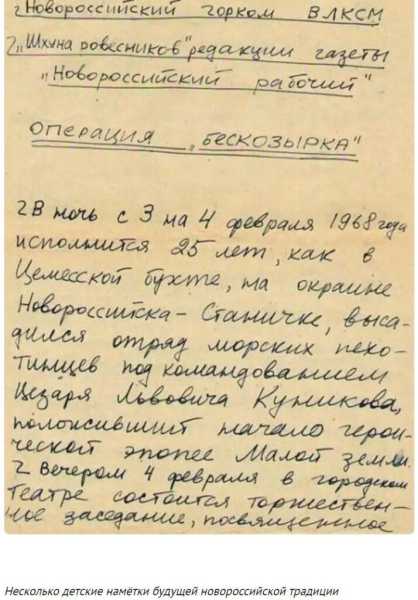 Новороссийский горком ВЛКСМ
"Шхуна ровесников" редакции газеты
"Новороссийский рабочий"
ОПЕРАЦИЯ "БЕСКОЗЫРКА"
В ночь с 3 на 4 февраля 1968 года
исполнится 25 лет, как в
Цемесской бухте, на окраине
Новороссийска - Станичке, выса-
дился отряд морских пехо-
тинцев под командованием
Цезаря Львовича Куникова,
положивший начало герои-
ческой эпопее Малой земли.
Вечером 4 февраля в городском
театре состоится торжествен-
ное заседание, посвященное
Несколько детские намётки будущей новороссийской традиции